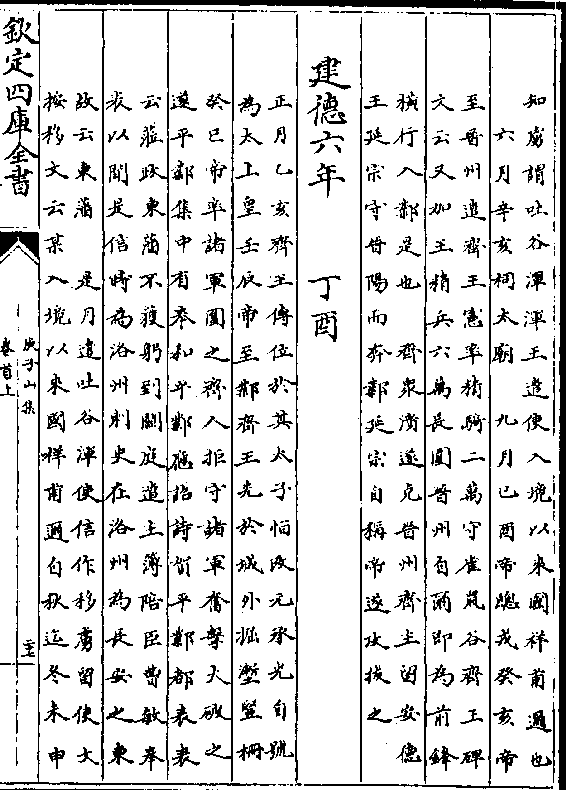 知虜謂吐谷渾渾王遣使入境以來國祥甫邇也
六月辛亥祠太廟　九月己酉帝聽戎癸亥帝
至晉州遣齊王憲率精騎二萬守雀鼠谷齊王碑
文云又加王精兵六萬長圍晉州自爾即為前鋒
橫行入鄴是也　齊衆潰遂克晉州齊主留安德
王延宗守晉陽而奔鄴延宗自稱帝遂攻拔之
建德六年　丁酉
正月乙亥齊王傳位於其太子恒改元承光自號
為太上皇壬辰帝至鄴齊王先於城外掘塹竪柵
癸巳帝率諸軍圍之齊人拒守諸軍奮擊大破之
遂平鄴集中有奉和平鄴應詔詩賀平鄴都表表
云莊跂東藩不獲躬到闕庭遣主簿陪臣曹敏奉
表以聞是信時為洛州刺史在洛州為長安之東
故云東藩　是月遣吐谷渾使信作移虜留使文
按移文云某入境以來國祥甫邇自秋迄冬未申
欽定四庫全書
庾子山集
卷首上